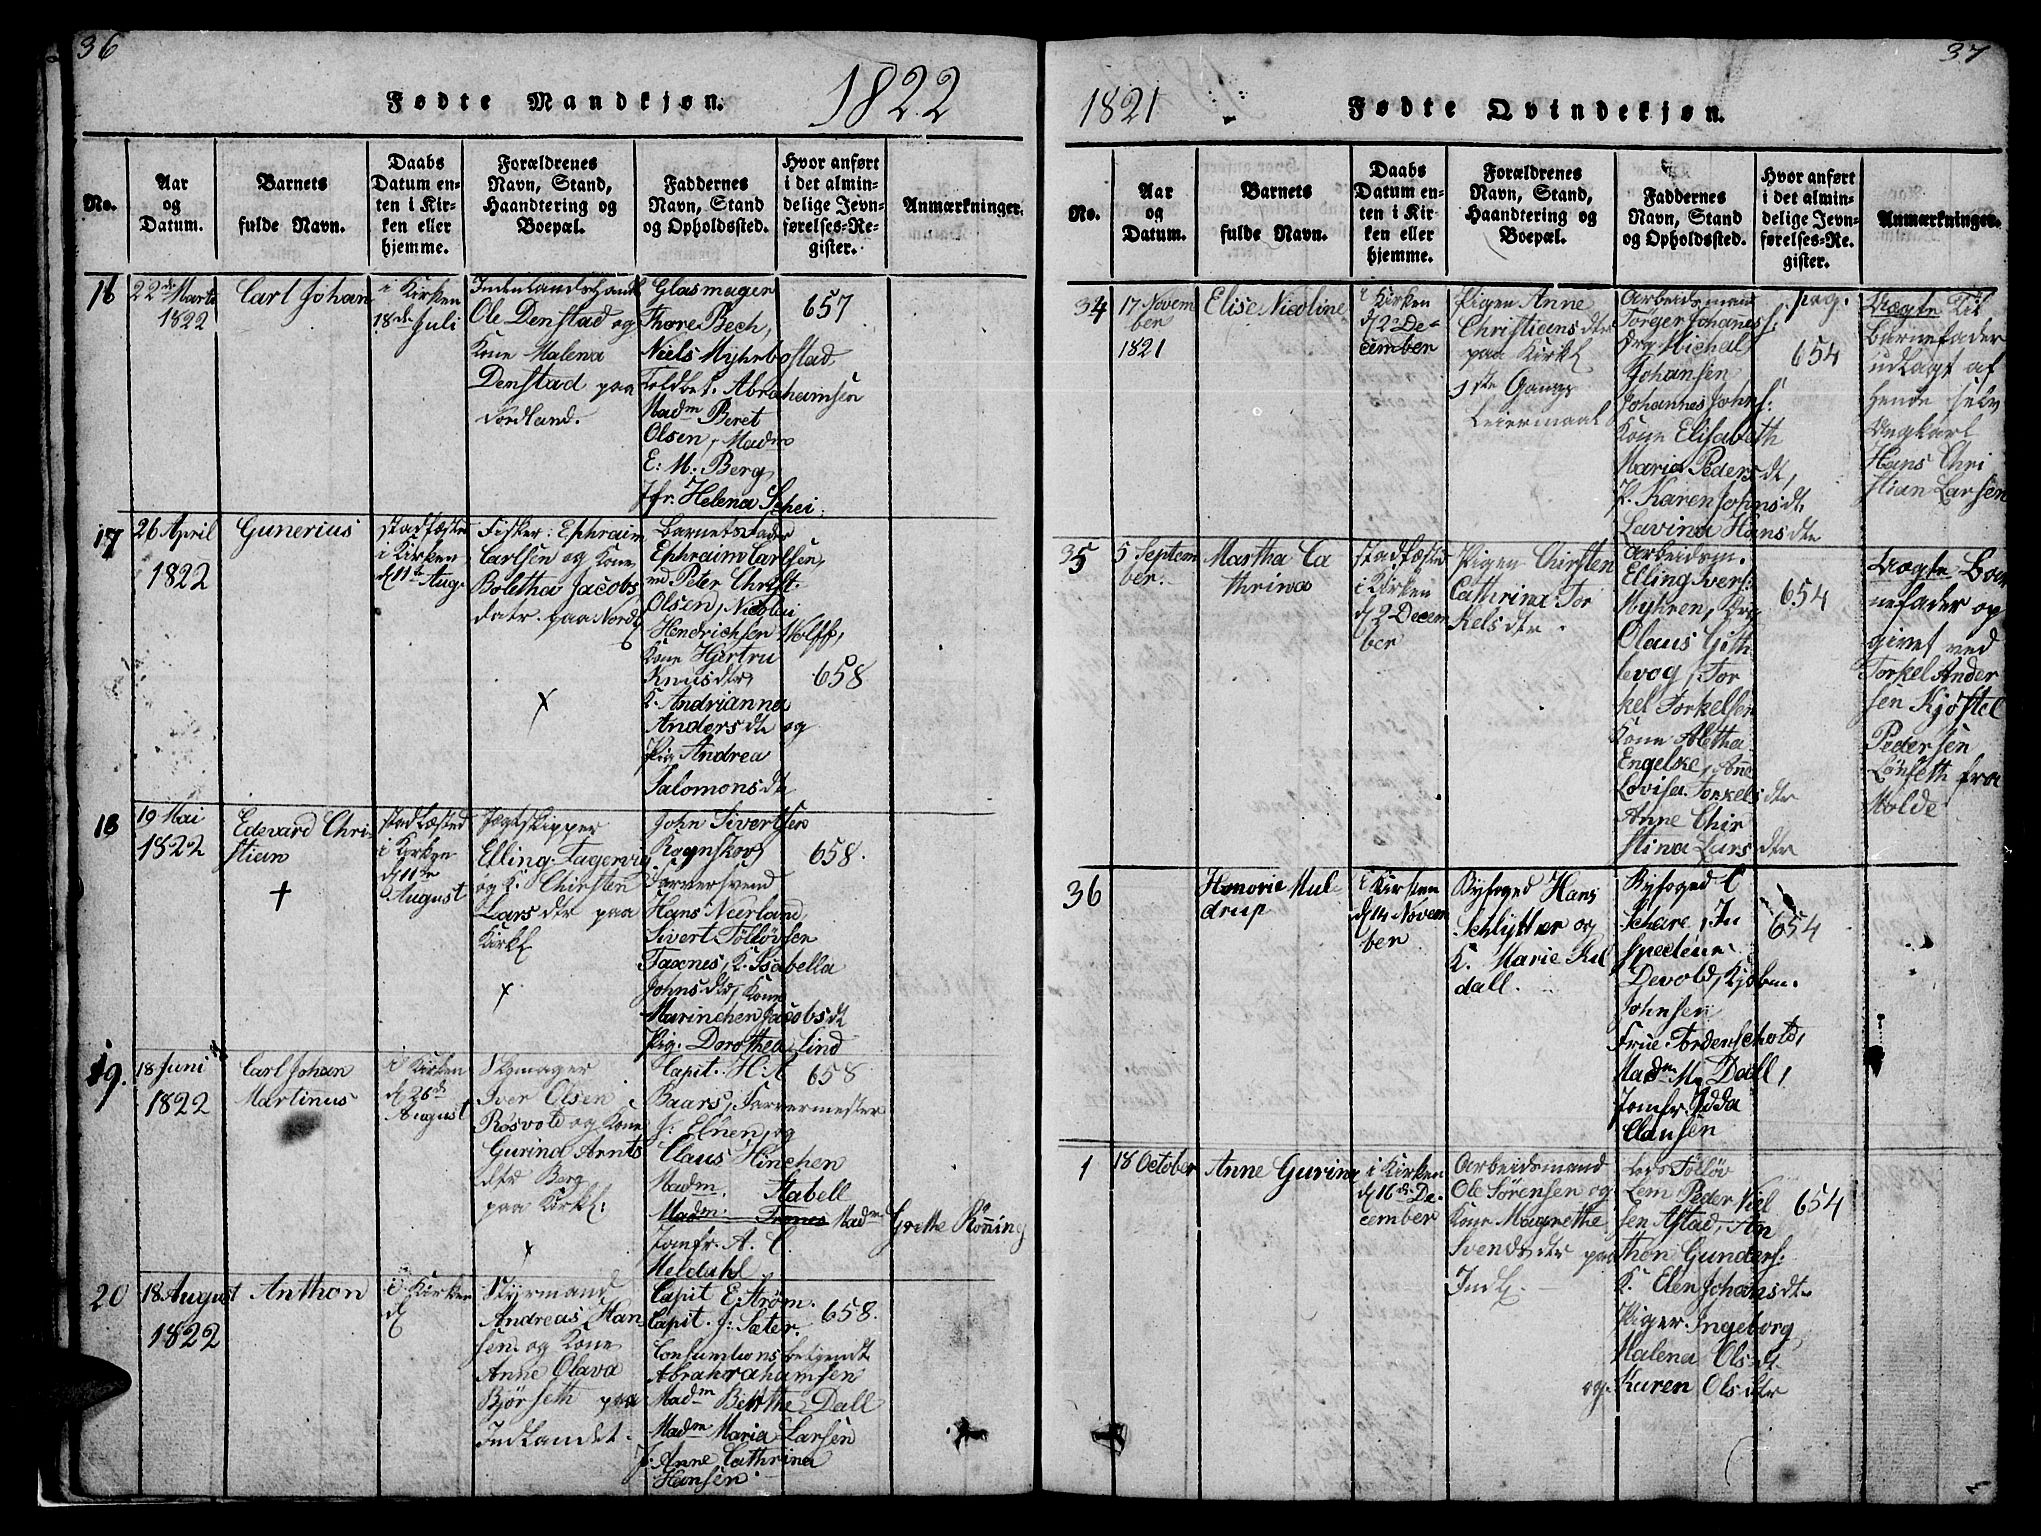 36
Fødte Mandkjøn.
1822
No.
Aar
og
Datum.
Barnets
fulde Navn.
Daabs
Datum en-
ten i Kir-
ken eller
hjemme.
Forældrenes
Navn, Stand,
Haandtering og
Boepæl.
Faddernes
Navn, Stand
og Opholdssted.
Hvor anført
i det almin-
delige Jevn-
førelses-Re-
gister.
Anmærkninger.
16
22de Marts
1822
Carl Johan
i Kirken
18de Juli
Ole Denstad og
Kone Malena
Denstad paa
Nordland.
Glasmager
Thore Bech,
Niels Myhrbostad
Toldbet. Abrahamsen
Madm Beret
Olsen, Madm
E: M: Berg
Jfr. Helena Schei
657
17
26 April
1822
Gunerius
stadfæstet
i Kirken
d 11te Aug.
Fisker: Ephraim
Carlsen og Kone
Boletha Jacobs
datr. paa Nordl
x
Barnets Fader
Ephraim Carlsen,
Peter Christ.
Olsen, Nicolai
Hendrichsen Wolff,
Kone Hjertru
Knusdtr,
K. Andrianna
Andersdt og
Pig Andrea
Salomonsdt
658
18
19 Mai
1822
Edevard Chri-
stian
+
stadfæsted
i Kirken
d 11te
August
Jægtskipper
Elling Fagervig
og K. Chirsten
Larsdtr paa
Kirkl
x
John Sivertsen
Rognskov
Farversvend
Hans Neerland,
Sivert Tølløvsen
Taxnes, K. Isabella
Johnsdtr, Kone
Marinchen Jacobsdt
Pig. Dorothea Lind
658.
19.
18 Juni
1822
Carl Johan
Martinus
i Kirken
d 26de
August
Skomager
Iver Olsen
Røsvold og Kone
Gurina Arnts
dtr Berg
paa Kirkl:
x
Capit. H: A
Baars, Farvermester
J: Elnen, og
Claus Hinchen
Madm. Stabell
Madm. Tennes Madm Grethe Rønning
Jomfr. A. C.
Meldahl
658
20
18 August
1822
Anthon
i Kirken
d
Styrmand
Andreas Han
sen og Kone
Anne Olava
Bjørseth paa
Indlandet.
Capit E. Strøm.
Capit. J: Sæter.
Consumtionsbetjendt
Abrahamsen
Madm Birthe Dall
Madm Maria Larsen
J. Anne Cathrina
Hansen
658.
37
1821
Fødte Qvindekjøn.
No.
Aar
og
Datum.
Barnets
fulde Navn.
Daabs
Datum en-
ten i Kir-
ken eller
hjemme.
Forældrenes
Navn, Stand,
Haandtering og
Boepæl.
Faddernes
Navn, Stand
og Opholdssted.
Hvor anført
i det almin-
delige Jevn-
førelses-Re-
gister.
Anmærkninger.
34
17 Novem
ber
1821
Elise Nicoline
i Kirken
d 2 De-
cember
Pigen Anne
Christiansdtr
paa Kirkl
1ste Gangs
Leiermaal
Arbeidsmand
Tørger Johanness:
Michal
Johansen
Johannes Johns:
Kone Elisabeth
Maria Pedersdt,
P. Karen Johnsdt
Lavina Hansdtr
pag.
654
Uægte Til
barnefader
udlagt af
hende selv
Ungkarl
Hans Chri
stian Larsen
35
5 Septem
ber.
Martha Ca
thrina
stadfæsted
i Kirken
d 2 Decem
ber
Pigen Chirsten
Cathrina Tor
kelsdtr.
Arbeidsm.
Elling Ivers:
Myhren,
Claus Gith
levog, Tor
kel Torkelsen
Kone Aletha
Engelke, Ane
Lovisa Torkelsdtr
Anne Chir
stina Larsdtr
654
Uægte Bar
nefader op
givet ved
Torkel Ander
sen Kjøstel
Pedersen
Lønseth fra
Molde
36
Honorie Mul
drup
i Kirken
d 14 Novem
ber
Byfoged Hans
Schlytter og
K. Marie Ru
dall.
Byfoged C
Schare, In
specteur
Devold, Kjøbm.
Johnsen
Frue Tordenschold,
Madm M. Dall,
Jomfr. Idda
Clausen
654
1
18 October
Anne Gurine
i Kirken
d 16de De-
cember
Arbeidsmand
Ole Sørensen og
Kone Magrethe
Svendsdtr paa
Indl.
Leds Tølløv
Lem, Peder Niel
sen Astad, An
thon Gunders:
K. Elen Johansdtr
Piger Ingeborg
Malena Olsdt
og Karen Olsdtr
654